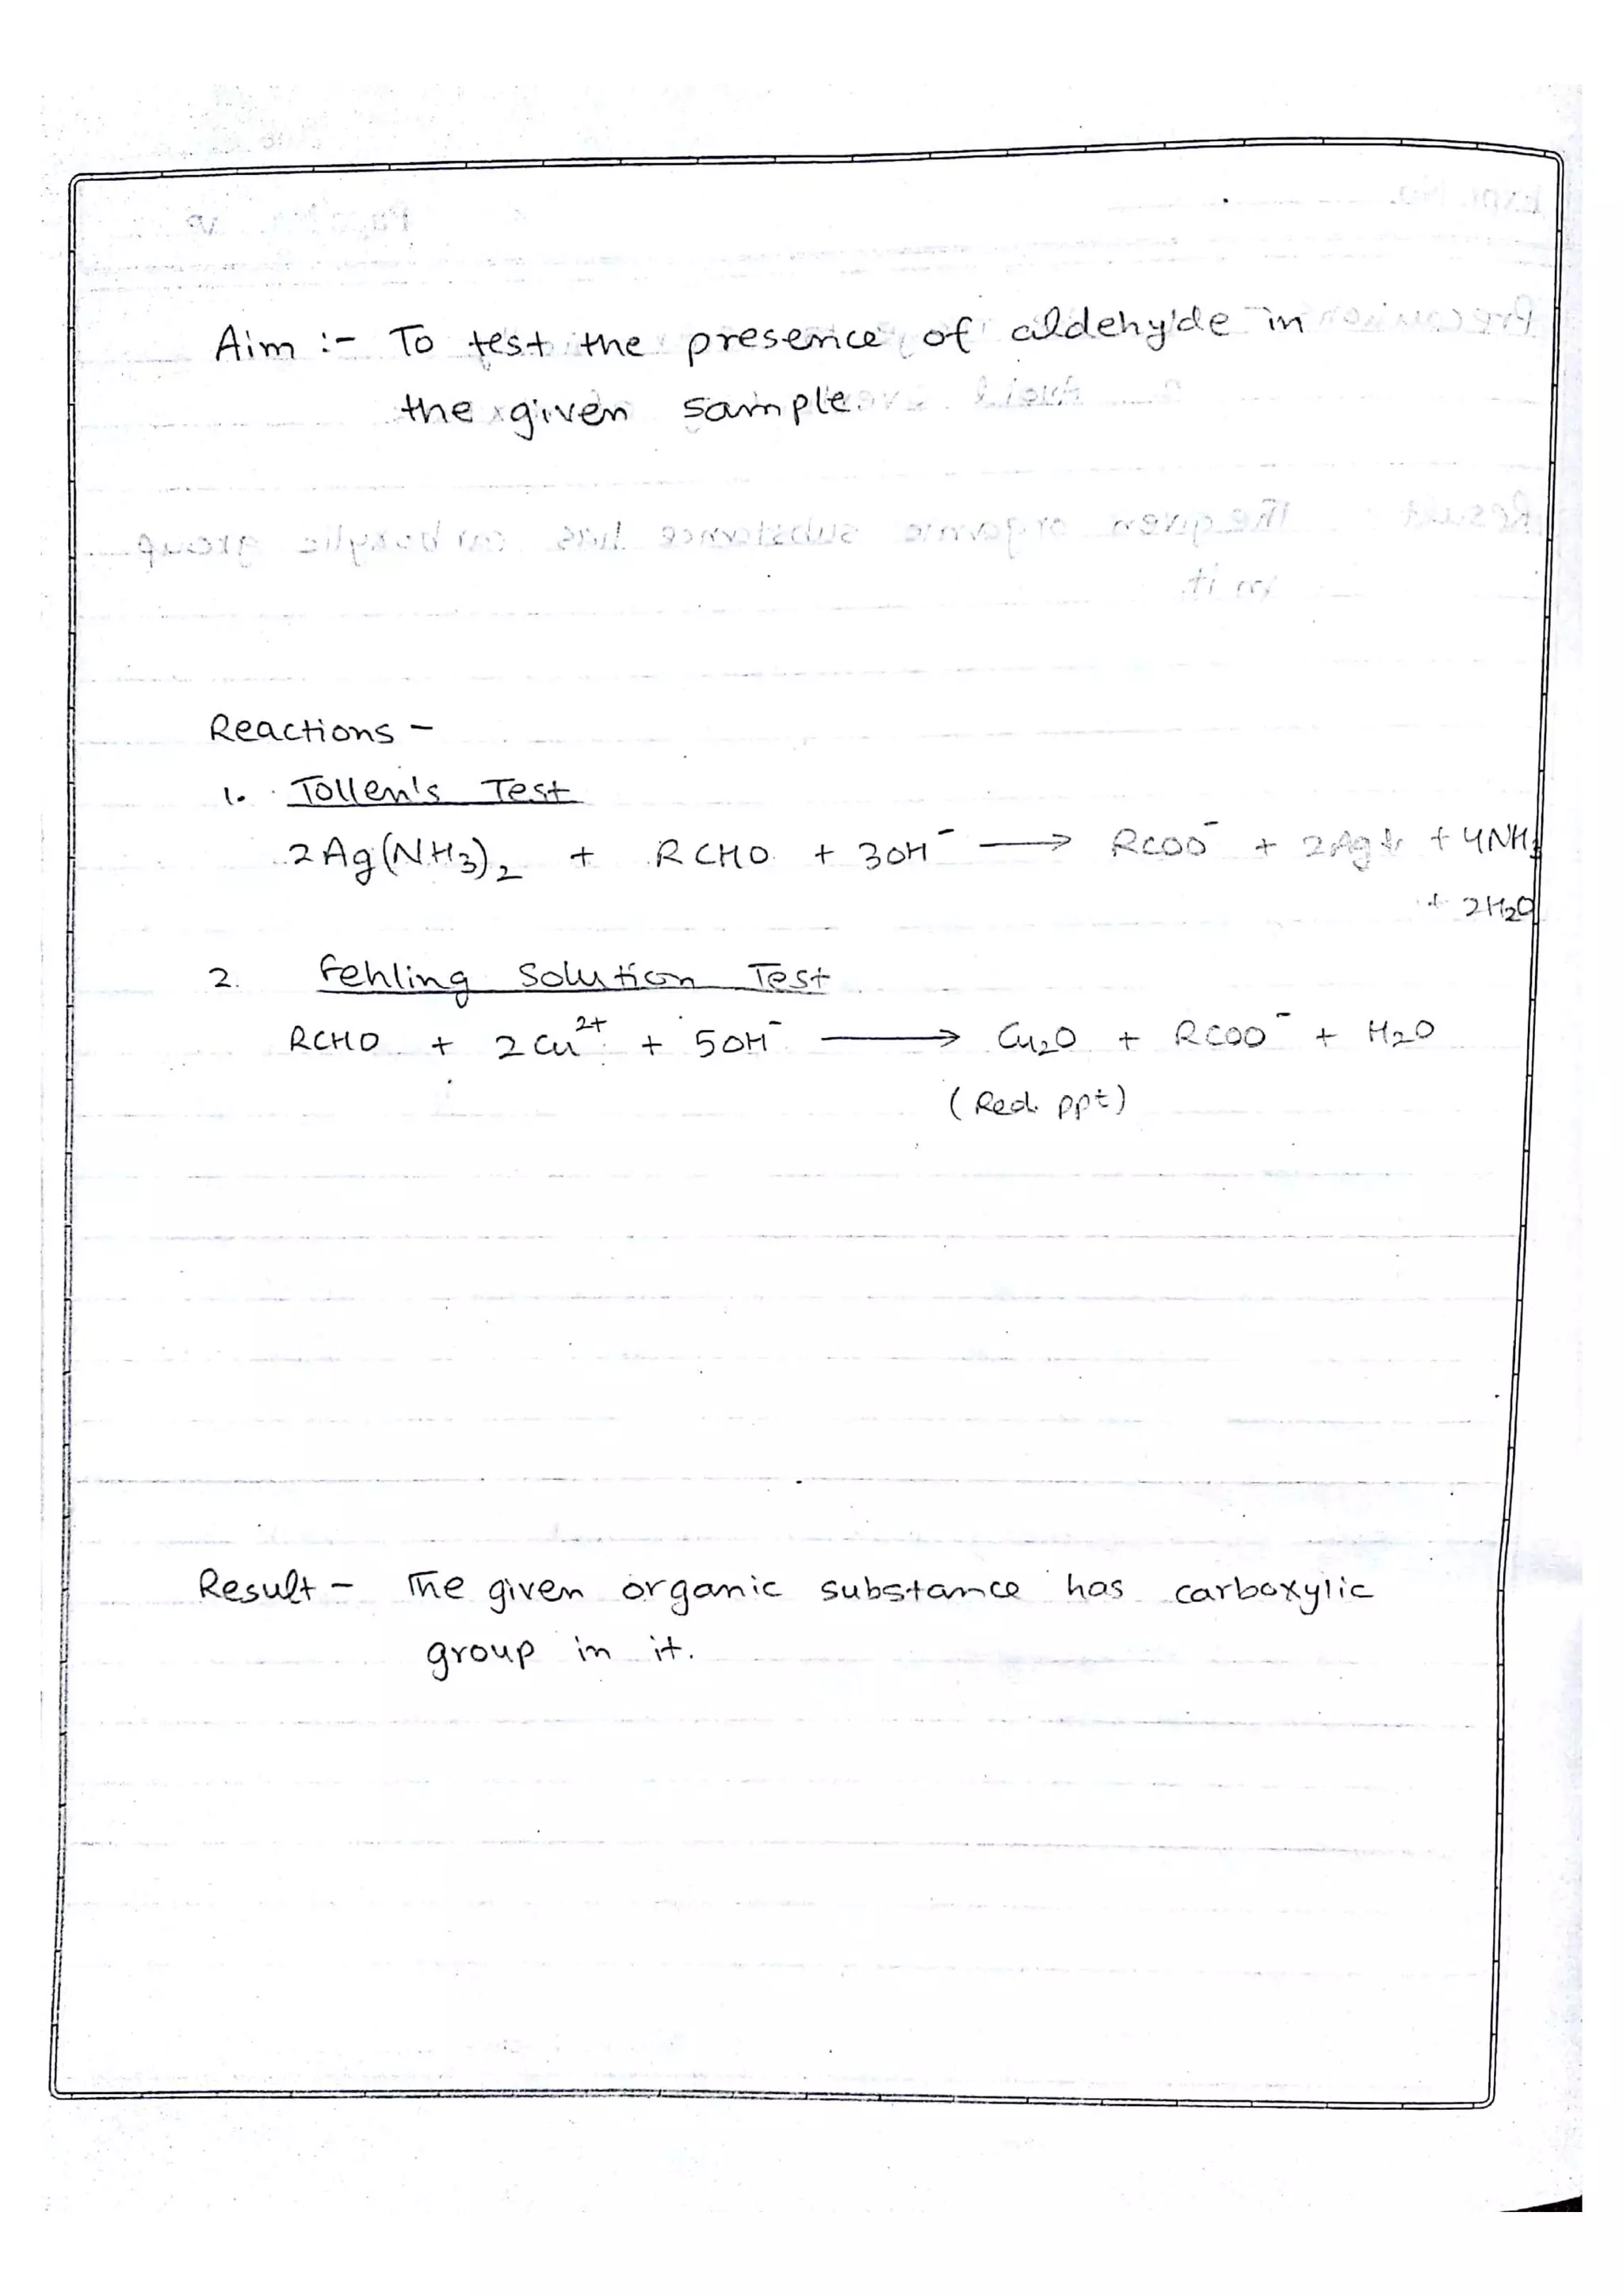 Aim :- To test the presence of aldehyde in
the given sample.
Reactions -
1. Tollen's Test
2Ag(NH3)2 + RCHO + 3OH⁻ ⟶ RCOO⁻ + 2Ag↓ + 4NH3
+ 2H2O
2. Fehling Solution Test
RCHO + 2Cu²⁺ + 5OH⁻ ⟶ Cu2O + RCOO⁻ + H2O
(Red ppt)
Result - The given organic substance has carboxylic
group in it.